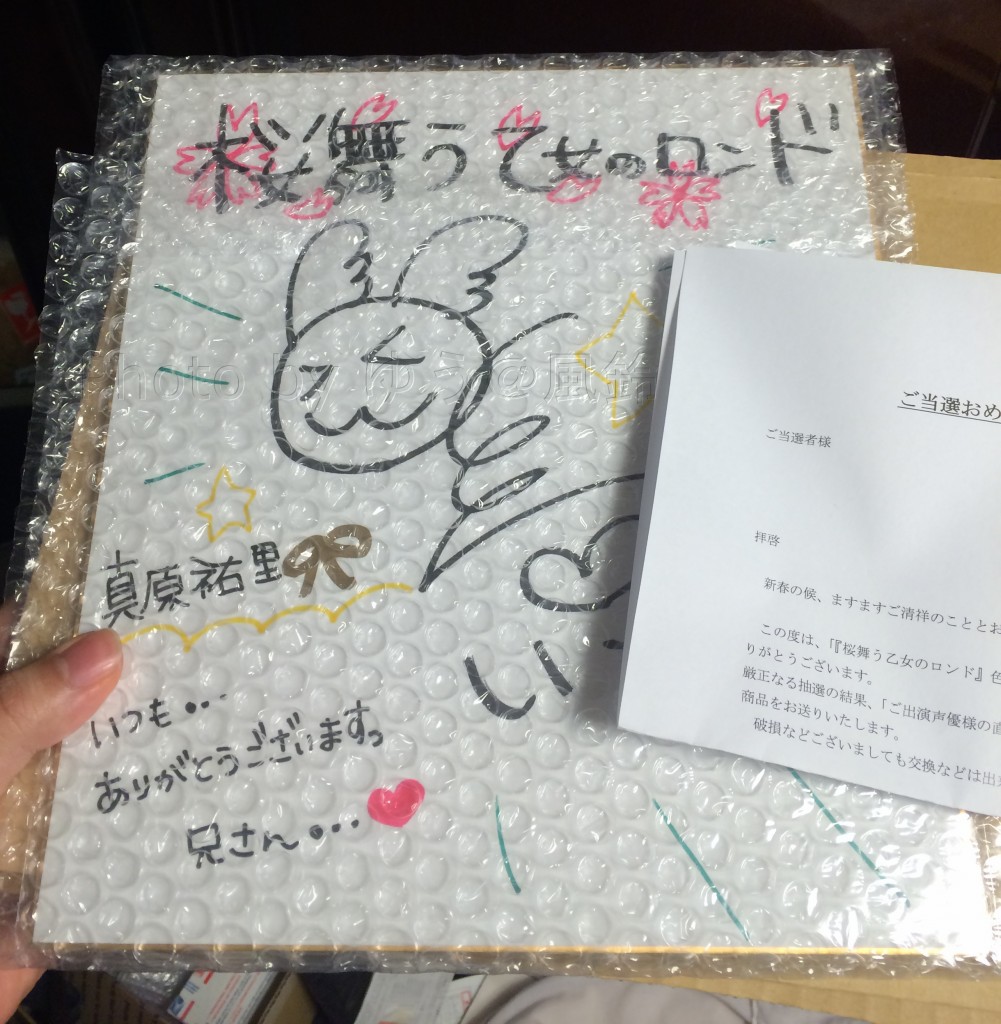 桜舞う乙女のロンド
真原祐里
いつも・・・
ありがとうございますっ
兄さん・・・
い
photo by ゆう@風鈴
ご当選おめ
ご当選者様
拝啓
新春の候、ますますご清祥のこととお
この度は、「『桜舞う乙女のロンド』色
りがとうございます。
厳正なる抽選の結果、「ご出演声優様の直
商品をお送りいたします。
破損などございましても交換などは出